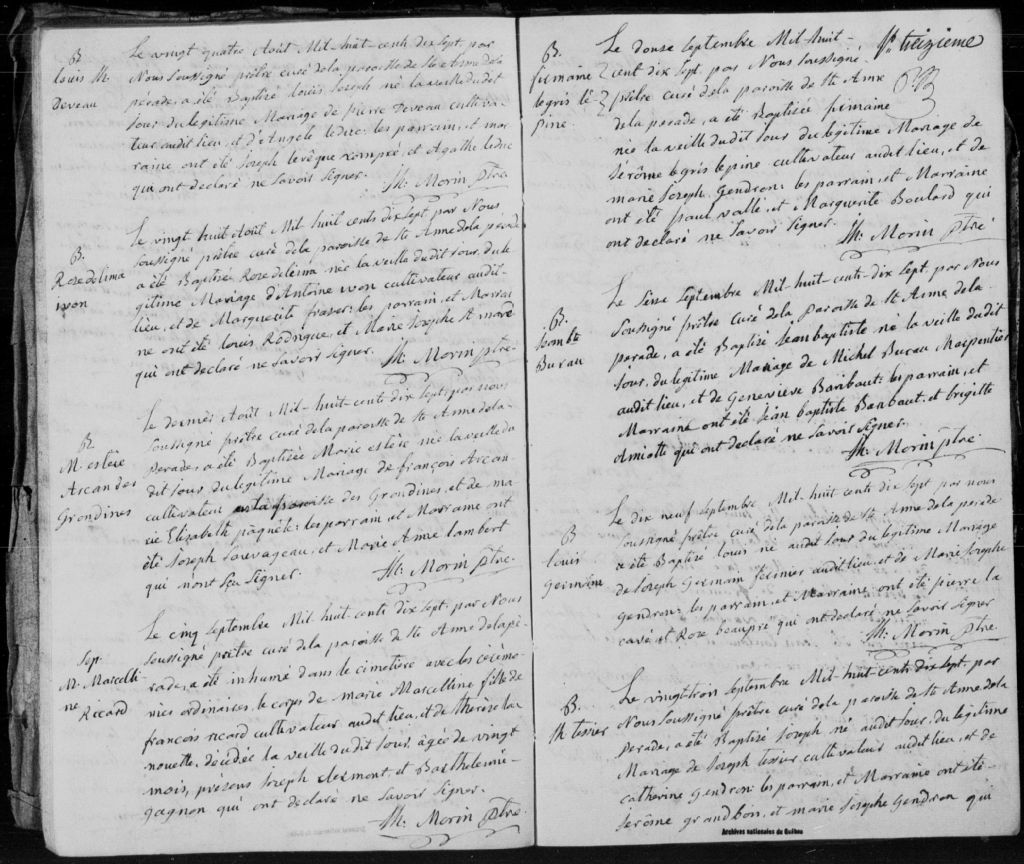 B.
louis Jh.
Deveau
Le vingt quatre Août Mil-huit-cents dix sept. par
Nous Soussigné prêtre curé de la paroisse de Ste Anne de la
perade, a été Baptizé louis Joseph né la veille du dit
Jour du legitime Mariage de pierre Deveau cultiva-
teur audit lieu, et d'Angele leduc: les parrain, et mar
raine ont été Joseph levêque rompré, et Agathe leduc
qui ont declaré ne Savoir Signer.
Jh: Morin ptre
B.
Rose delima
ivon
Le vingt huit Août Mil huit cents dix sept par Nous
Soussigné prêtre curé de la paroisse de Ste Anne de la perade
a été Baptisé Rose deleima née la veille du dit Jour, du le
gitime Mariage d'Antoine ivon cultivateur audit-
lieu, et de Marguerite fraser: les parrain, et Marrai
ne ont été louis Rodrigue, et Marie Josephe St more
qui ont declaré ne Savoir Signer.
Jh: Morin ptre.
B.
M. estère
Arcandes
Grondines
Le dernier Août Mil-huit-cents-dix sept, par nous
Soussigné prêtre curé de la paroisse de Ste Anne de la
perade, a été Baptizée Marie estère née la veille du
dit Jour du legitime Mariage de françois Arcan
cultivateur la paroisse des Grondines, et de ma
rie Elizabeth paqnete: les parrain, et Marraine ont
été Joseph Sauvageau, et Marie Anne lambert
qui n'ont Sçu Signer.
Jh: Morin ptre.
Sep.
M. Marcelli
ne
Ricard
Le cinq Septembre Mil huit cents dix sept. par Nous
Soussigné prêtre curé de la paroisse de Ste Anne de la pé-
rade, a été inhumé dans le cimetière avec les cérémo-
nies ordinaires, le corps de marie Marcelline fille de
françois ricard cultivateur audit lieu, et de therèze la
nouette, décédée la veille du dit Jour, âgée de vingt
mois, présens Joseph clermont, et Barthelemie-
gagnon qui ont declaré ne Savoir Signer.
Jh: Morin ptre.
treizieme
B.
firmaine
legris lé
pine.
Le douse Septembre Mil-huit-
cent dix Sept. par Nous Soussigné
prêtre curé de la paroisse de Ste Anne
de la perade, a été Baptisée firmaine
née la veille du dit Jour du legitime Mariage de
Jérôme legris lepine cultivateur audit lieu, et de
marie Joseph Gendron: les parrain, et Marraine
ont été paul vallé, et Marguerite Boulard qui
ont declaré ne Savoir Signer.
Jh: Morin ptre
B.
Jean bte
Bureau
Le Seise Septembre Mil-huit-cents-dix Sept. par Nous
Soussigné prêtre Curé de la paroisse de Ste Anne de la
perade, a été Baptizé Jean baptiste né la veille du dit
Jour, du legitime Mariage de Michel Bureau Charpentier
audit lieu, et de Genevieve Baribaut: les parrain, et
Marraine ont été Jean baptiste Baribaut, et brigitte
Amiotte qui ont declaré ne Savoir Signer.
Jh: Morin ptre.
B
louis
Germain
Le dix neuf Septembre Mil-huit cents dix Sept par nous
Soussigné prêtre curé de la paroisse de Ste Anne de la perade
a été Baptizé louis né audit Jour du legitime Mariage
de Joseph Germain fermier audit lieu, et de Marie Josephe
Gendron: les parrain, et Marraine ont été pierre la
cave et Rose beaupré qui ont declaré ne Savoir Signer
Jh: Morin ptre.
B.
Jh tessier
Le vingt trois Septembre Mil-huit-cents dix sept. par
Nous Soussigné prêtre curé de la paroisse de Ste Anne de la
perade, a été Baptizé Joseph né audit Jour, du legitime
Mariage de Joseph tessier cultivateur audit lieu, et de
Catherine Gendron: les parrain, et Marraine ont été-
Jerôme grandbois, et marie Josephe Gendron qui
Archives nationales du Québec